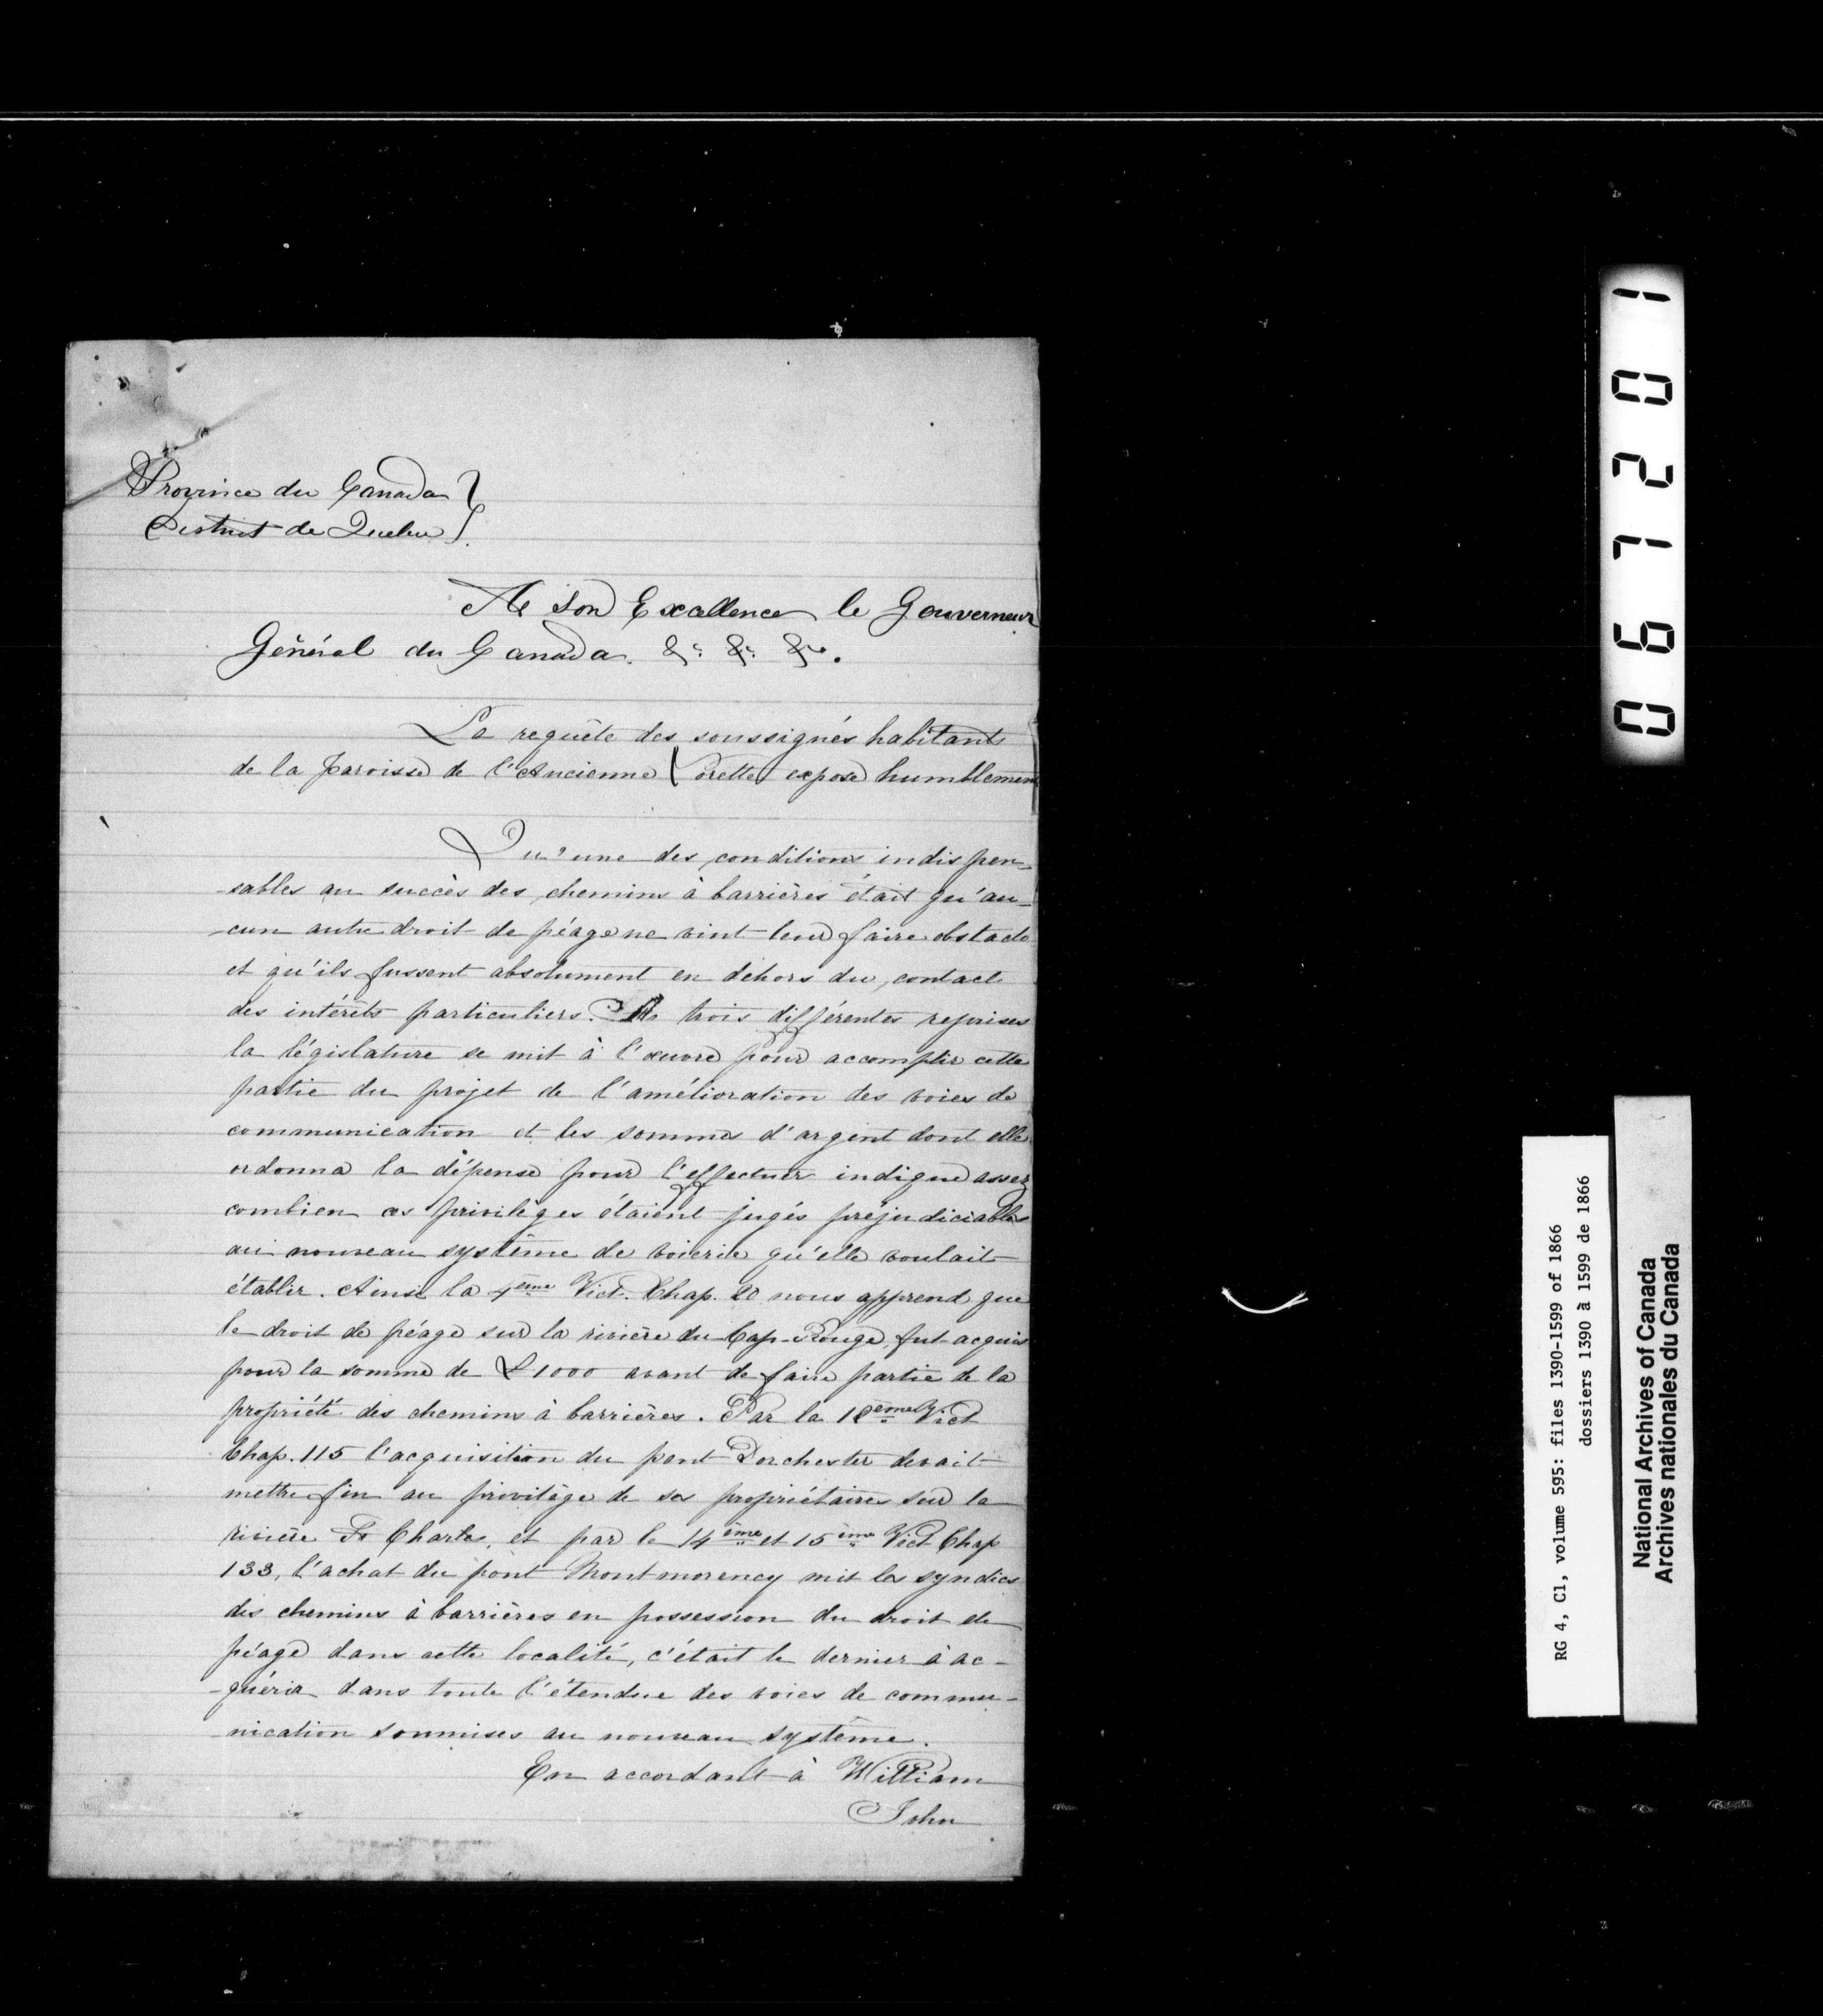 Province du Canada
District de Quebec
A Son Excellence le Gouverneur
Général du Canada. &c. &c. &c.
La requête des soussignés habitants
de la paroisse de l'Ancienne Lorette expose humblement
Qu'une des conditions indispen-
-sables au succès des chemins à barrières était qu'au-
-cun autre droit de péage ne vint leur faire obstacle
et qu'ils fussent absolument en dehors du contact
des intérêts particuliers. A trois différentes reprises
la législature se mit à l'œuvre pour accomplir cette
partie du projet de l'amélioration des voies de
communication et les sommes d'argent dont elle
ordonna la dépense pour l'effectuer indique assez
combien ces privilèges étaient jugés préjudiciables
au nouveau système de voierie qu'elle voulait
établir. Ainsi la 4ème Vict. Chap. 20 nous apprend que
le droit de péage sur la rivière du Cap-Rouge, fut acquis
pour la somme de £1000 avant de faire partie de la
propriété des chemins à barrières. Par la ème Vict
Chap. 115 l'acquisition du pont Dorchester devait
mettre fin au privilège de ses propriétaires sur la
rivière St Charles, et par la 14ème et 15ème Vict Chap
133, l'achat du pont Montmorency mit les syndics
des chemins à barrières en possession du droit de
péage dans cette localité, c'était le dernier à ac-
-quérir dans toute l'étendue des voies de commu-
-nication soumises au nouveau système.
En accordant à William
John
067201
RG 4, C1, volume 595: files 1390-1599 of 1866
dossiers 1390 à 1599 de 1866
National Archives of Canada
Archives nationales du Canada